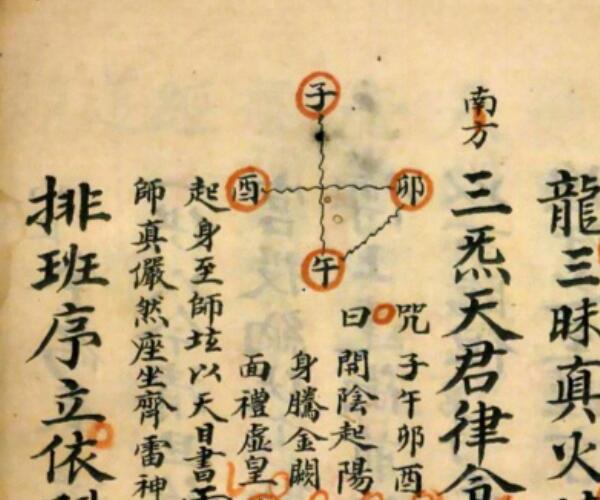 龍三昧真火
南方
三炁天君律令
子
酉
卯
午
咒子午卯酉
曰開陰起陽
身騰金闕
面禮虛皇
起身至師垓以天目書
師真儼然座坐齊雷神
排班序立依